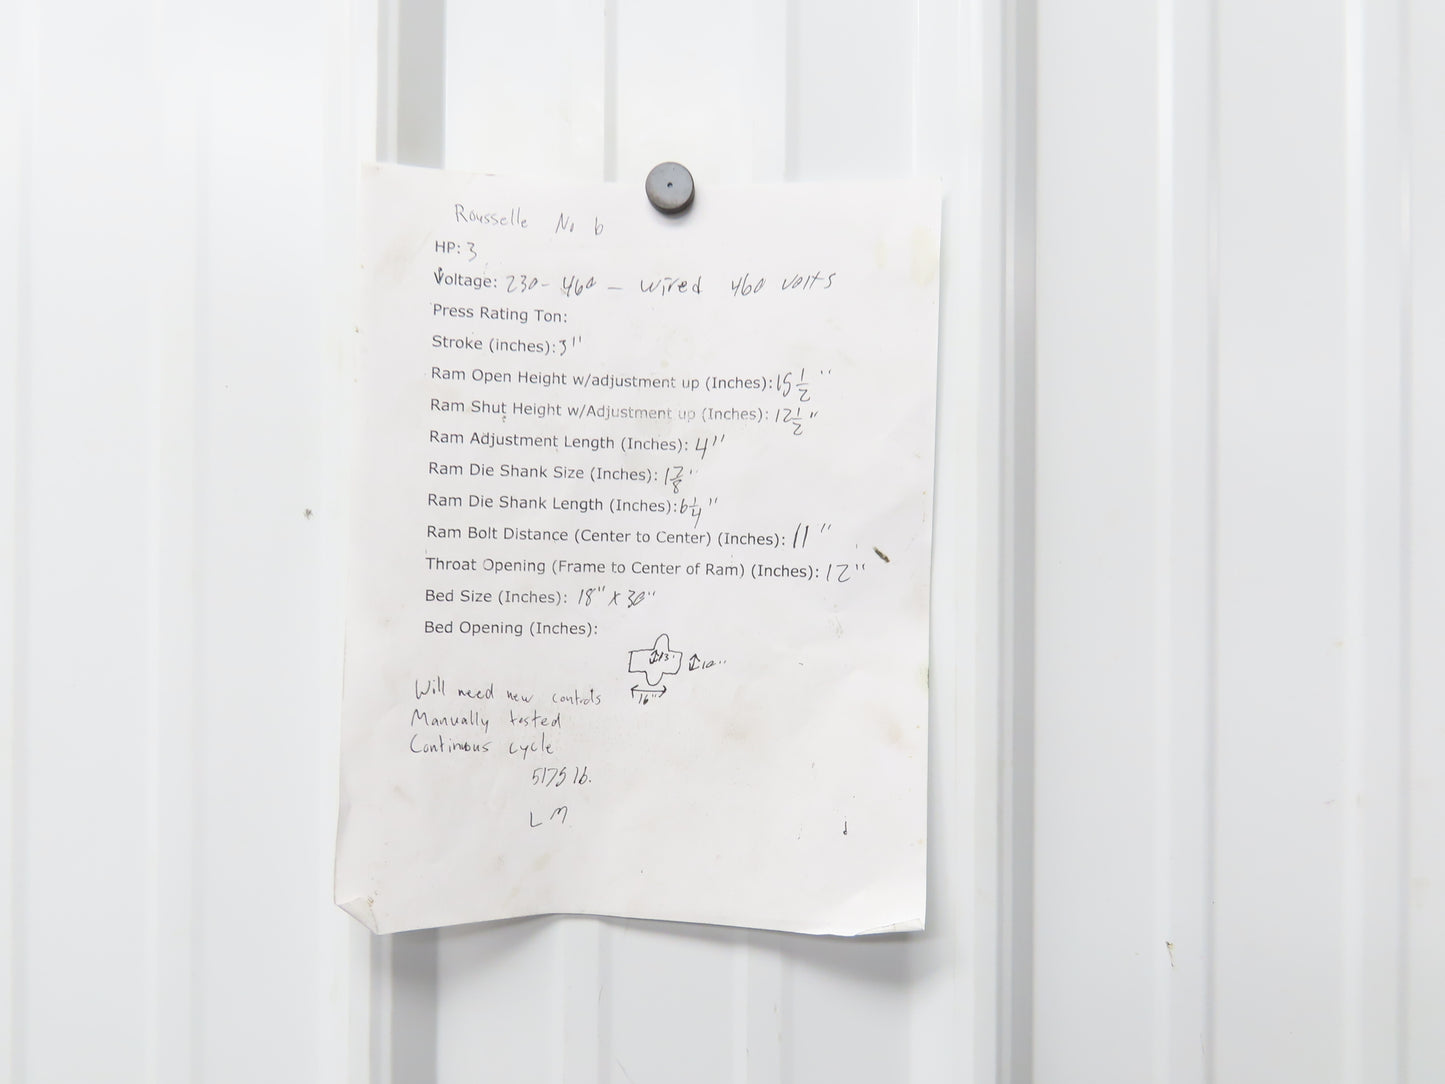 Rousselle No 6
HP: 3
Voltage: 230-460 - wired 460 volts
Press Rating Ton:
Stroke (inches): 3"
Ram Open Height w/adjustment up (Inches): 15 1/2"
Ram Shut Height w/Adjustment up (Inches): 12 1/2"
Ram Adjustment Length (Inches): 4"
Ram Die Shank Size (Inches):
Ram Die Shank Length (Inches): 6 1/4"
Ram Bolt Distance (Center to Center) (Inches): 11"
Throat Opening (Frame to Center of Ram) (Inches): 12"
Bed Size (Inches): 18" x 30"
Bed Opening (Inches):
13" 10"
16"
Will need new controls
Manually tested
Continuous cycle
5175 lb.
LM